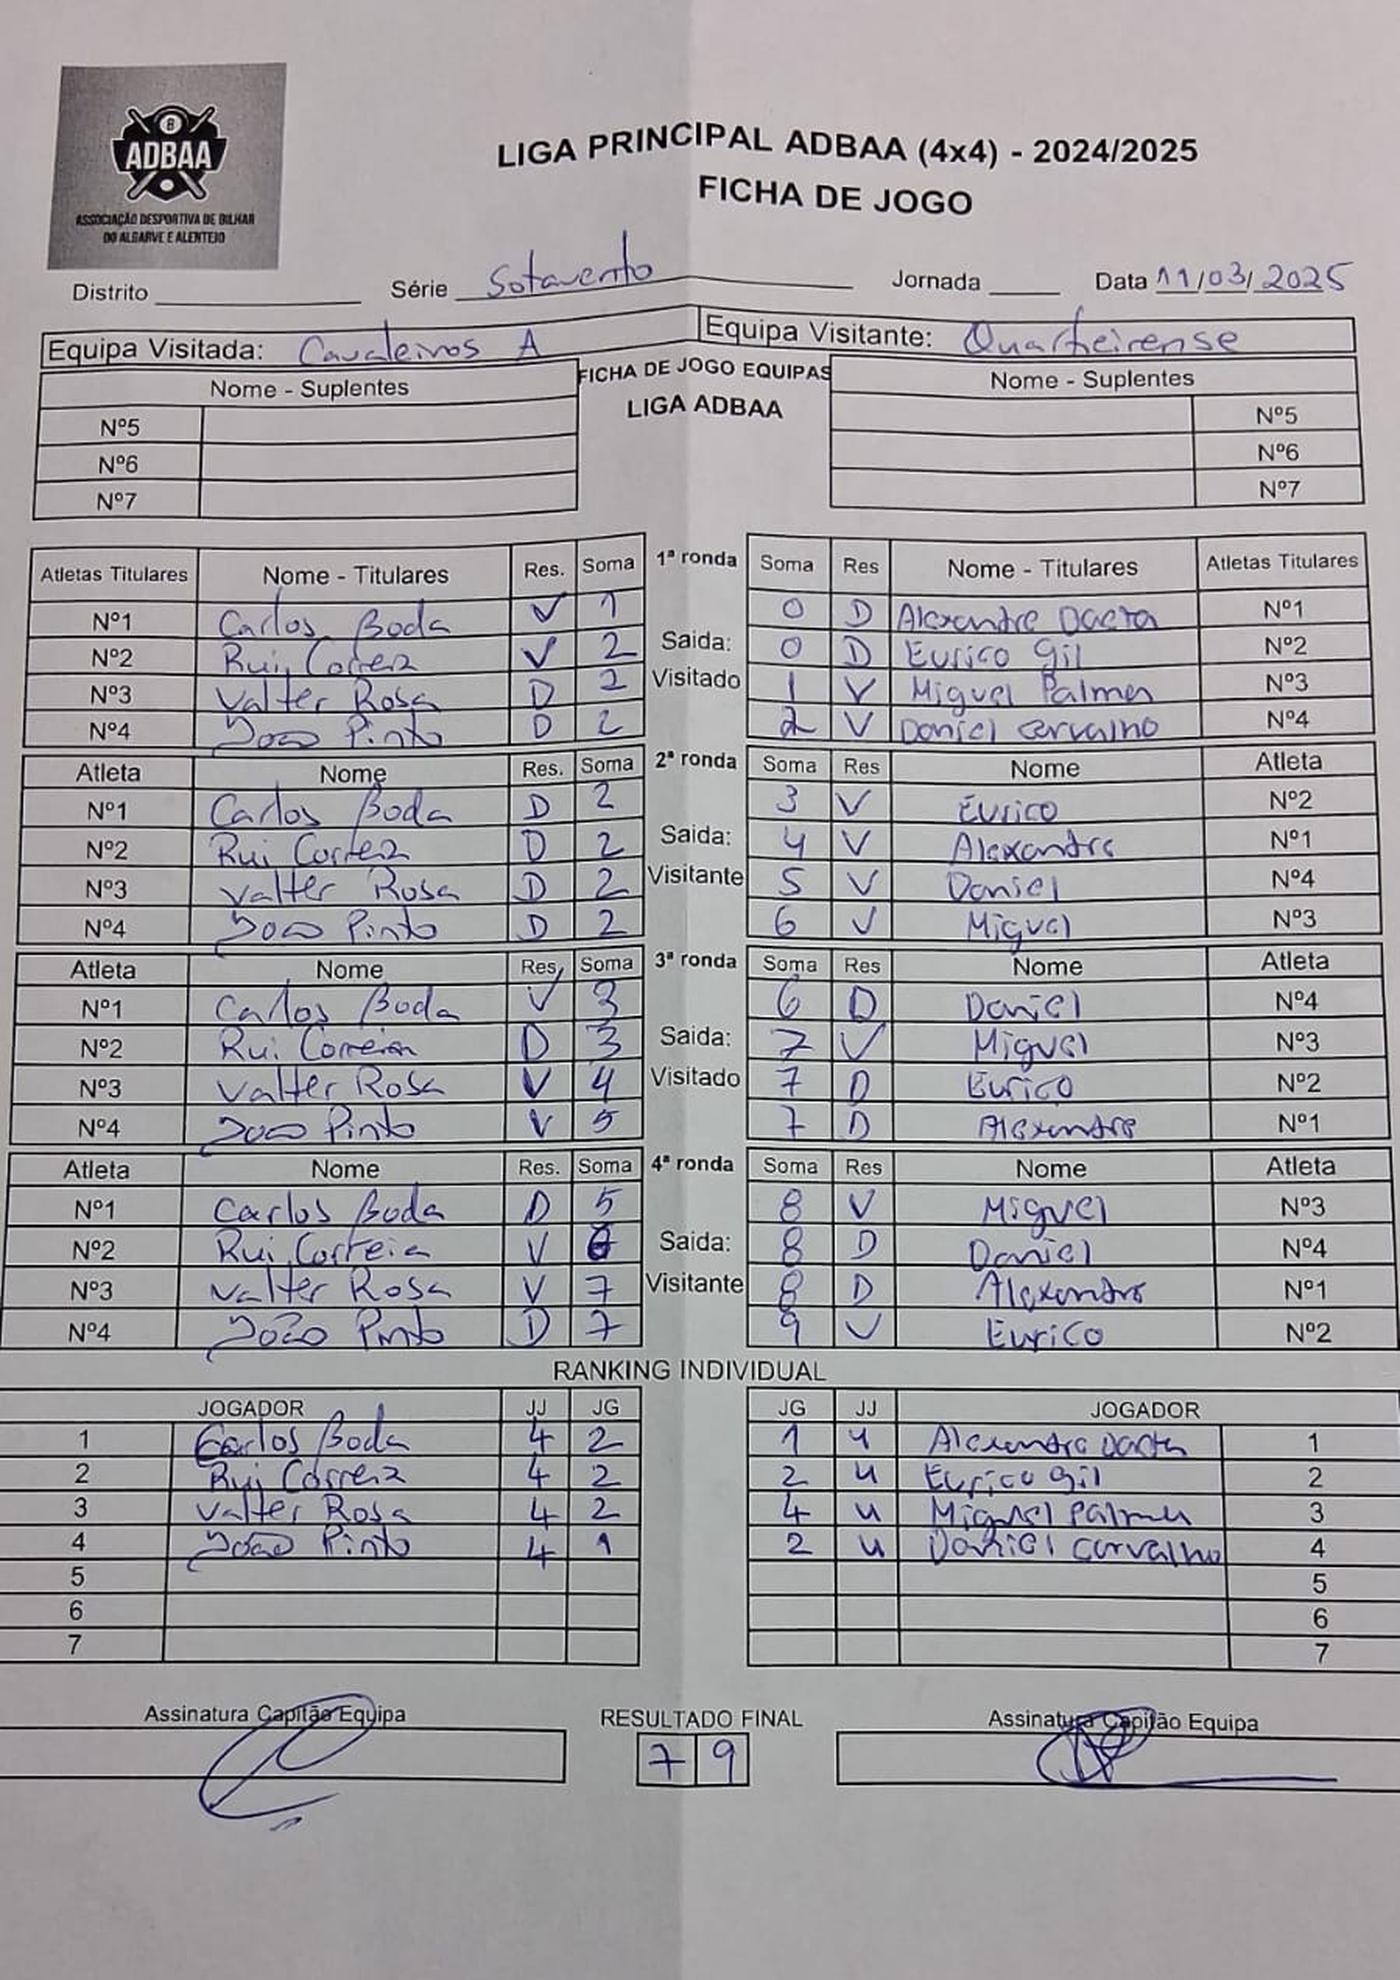 8
ADBAA
ASSOCIAÇÃO DESPORTIVA DE BILHAR
DO ALGARVE E ALENTEJO
LIGA PRINCIPAL ADBAA (4x4) - 2024/2025
FICHA DE JOGO
Distrito Série Sotavento Jornada Data 11/03/2025
Equipa Visitada: Cavaleiros A Equipa Visitante: Quarteirense
Nome - Suplentes FICHA DE JOGO EQUIPAS Nome - Suplentes
LIGA ADBAA
Nº5 Nº5
Nº6 Nº6
Nº7 Nº7
Atletas Titulares Nome - Titulares Res. Soma 1ª ronda Soma Res Nome - Titulares Atletas Titulares
Nº1 Carlos Boda V 1 0 D Alexandre Nº1
Nº2 Rui Correia V 2 Saida: 0 D Eurico Gil Nº2
Nº3 Valter Rosa D 2 Visitado 1 V Miguel Palma Nº3
Nº4 Joao Pinto D 2 2 V Daniel Carvalho Nº4
Atleta Nome Res. Soma 2ª ronda Soma Res Nome Atleta
Nº1 Carlos Boda D 2 3 V Eurico Nº2
Nº2 Rui Correia D 2 Saida: 4 V Alexandre Nº1
Nº3 Valter Rosa D 2 Visitante 5 V Daniel Nº4
Nº4 Joao Pinto D 2 6 V Miguel Nº3
Atleta Nome Res. Soma 3ª ronda Soma Res Nome Atleta
Nº1 Carlos Boda V 3 6 D Daniel Nº4
Nº2 Rui Correia D 3 Saida: 7 V Miguel Nº3
Nº3 Valter Rosa V 4 Visitado 7 D Eurico Nº2
Nº4 Joao Pinto V 5 7 D Alexandre Nº1
Atleta Nome Res. Soma 4ª ronda Soma Res Nome Atleta
Nº1 Carlos Boda D 5 8 V Miguel Nº3
Nº2 Rui Correia V 6 Saida: 8 D Daniel Nº4
Nº3 Valter Rosa V 7 Visitante 8 D Alexandre Nº1
Nº4 João Pinto D 7 9 V Eurico Nº2
RANKING INDIVIDUAL
JOGADOR JJ JG JG JJ JOGADOR
1 Carlos Boda 4 2 1 4 Alexandre 1
2 Rui Correia 4 2 2 4 Eurico Gil 2
3 Valter Rosa 4 2 4 4 Miguel Palma 3
4 João Pinto 4 1 2 4 Daniel Carvalho 4
5 5
6 6
7 7
Assinatura Capitão Equipa RESULTADO FINAL Assinatura Capitão Equipa
7 9